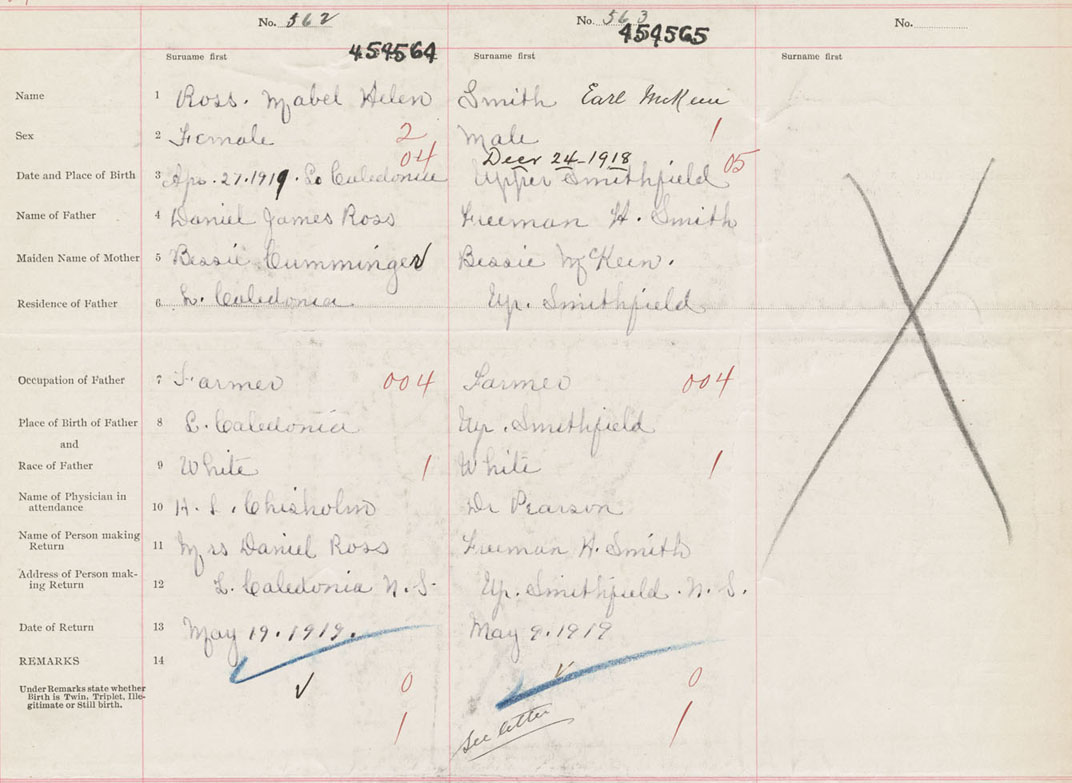 No. 562 No. 563 No.
459564 459565
Surname first Surname first Surname first
Name 1 Ross. Mabel Helen Smith Earl McKeen
Sex 2 Female 2 Male 1
04 Decr 24-1918 05
Date and Place of Birth 3 Apr. 27.1919. L. Caledonia Upper Smithfield
Name of Father 4 Daniel James Ross Freeman H. Smith
Maiden Name of Mother 5 Bessie Cumminger Bessie McKeen.
Residence of Father 6 L. Caledonia Up. Smithfield
Occupation of Father 7 Farmer 004 Farmer 004
Place of Birth of Father 8 L. Caledonia Up. Smithfield
and
Race of Father 9 White 1 White 1
Name of Physician in
attendance 10 Chisholm Dr Pearson
Name of Person making
Return 11 Mrs Daniel Ross Freeman H. Smith
Address of Person mak-
ing Return 12 L. Caledonia N.S. Up. Smithfield. N.S.
Date of Return 13 May 19.1919. May 9.1919
REMARKS 14
Under Remarks state whether
Birth is Twin, Triplet, Ille-
gitimate or Still birth.
0 0
1 see letter 1